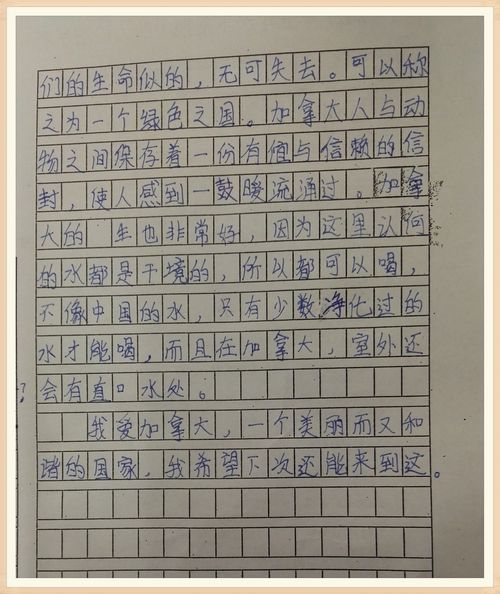 们的生命似的，无可失去。可以称
之为一个绿色之国。加拿大人与动
物之间保存着一份有值与信赖的信
封，使人感到一鼓暖流涌过。加拿
大的 生也非常好，因为这里认何
的水都是干境的，所以都可以喝，
不像中国的水，只有少数净化过的
水才能喝，而且在加拿大，室外还
会有直口水处。
我爱加拿大，一个美丽而又和
谐的国家，我希望下次还能来到这。